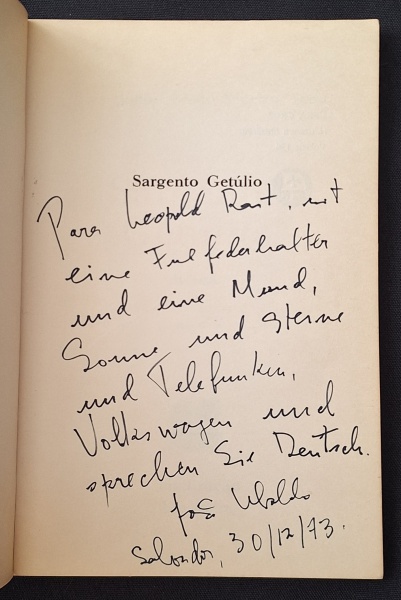 Sargento Getúlio
Para Leopold Rast, mit
eine Fulfederhalter
und eine Mund,
Sonne und Sterne
und Telefunken,
Volkswagen und
sprechen Sie Deutsch.
João Ubaldo
Salvador, 30/12/73.